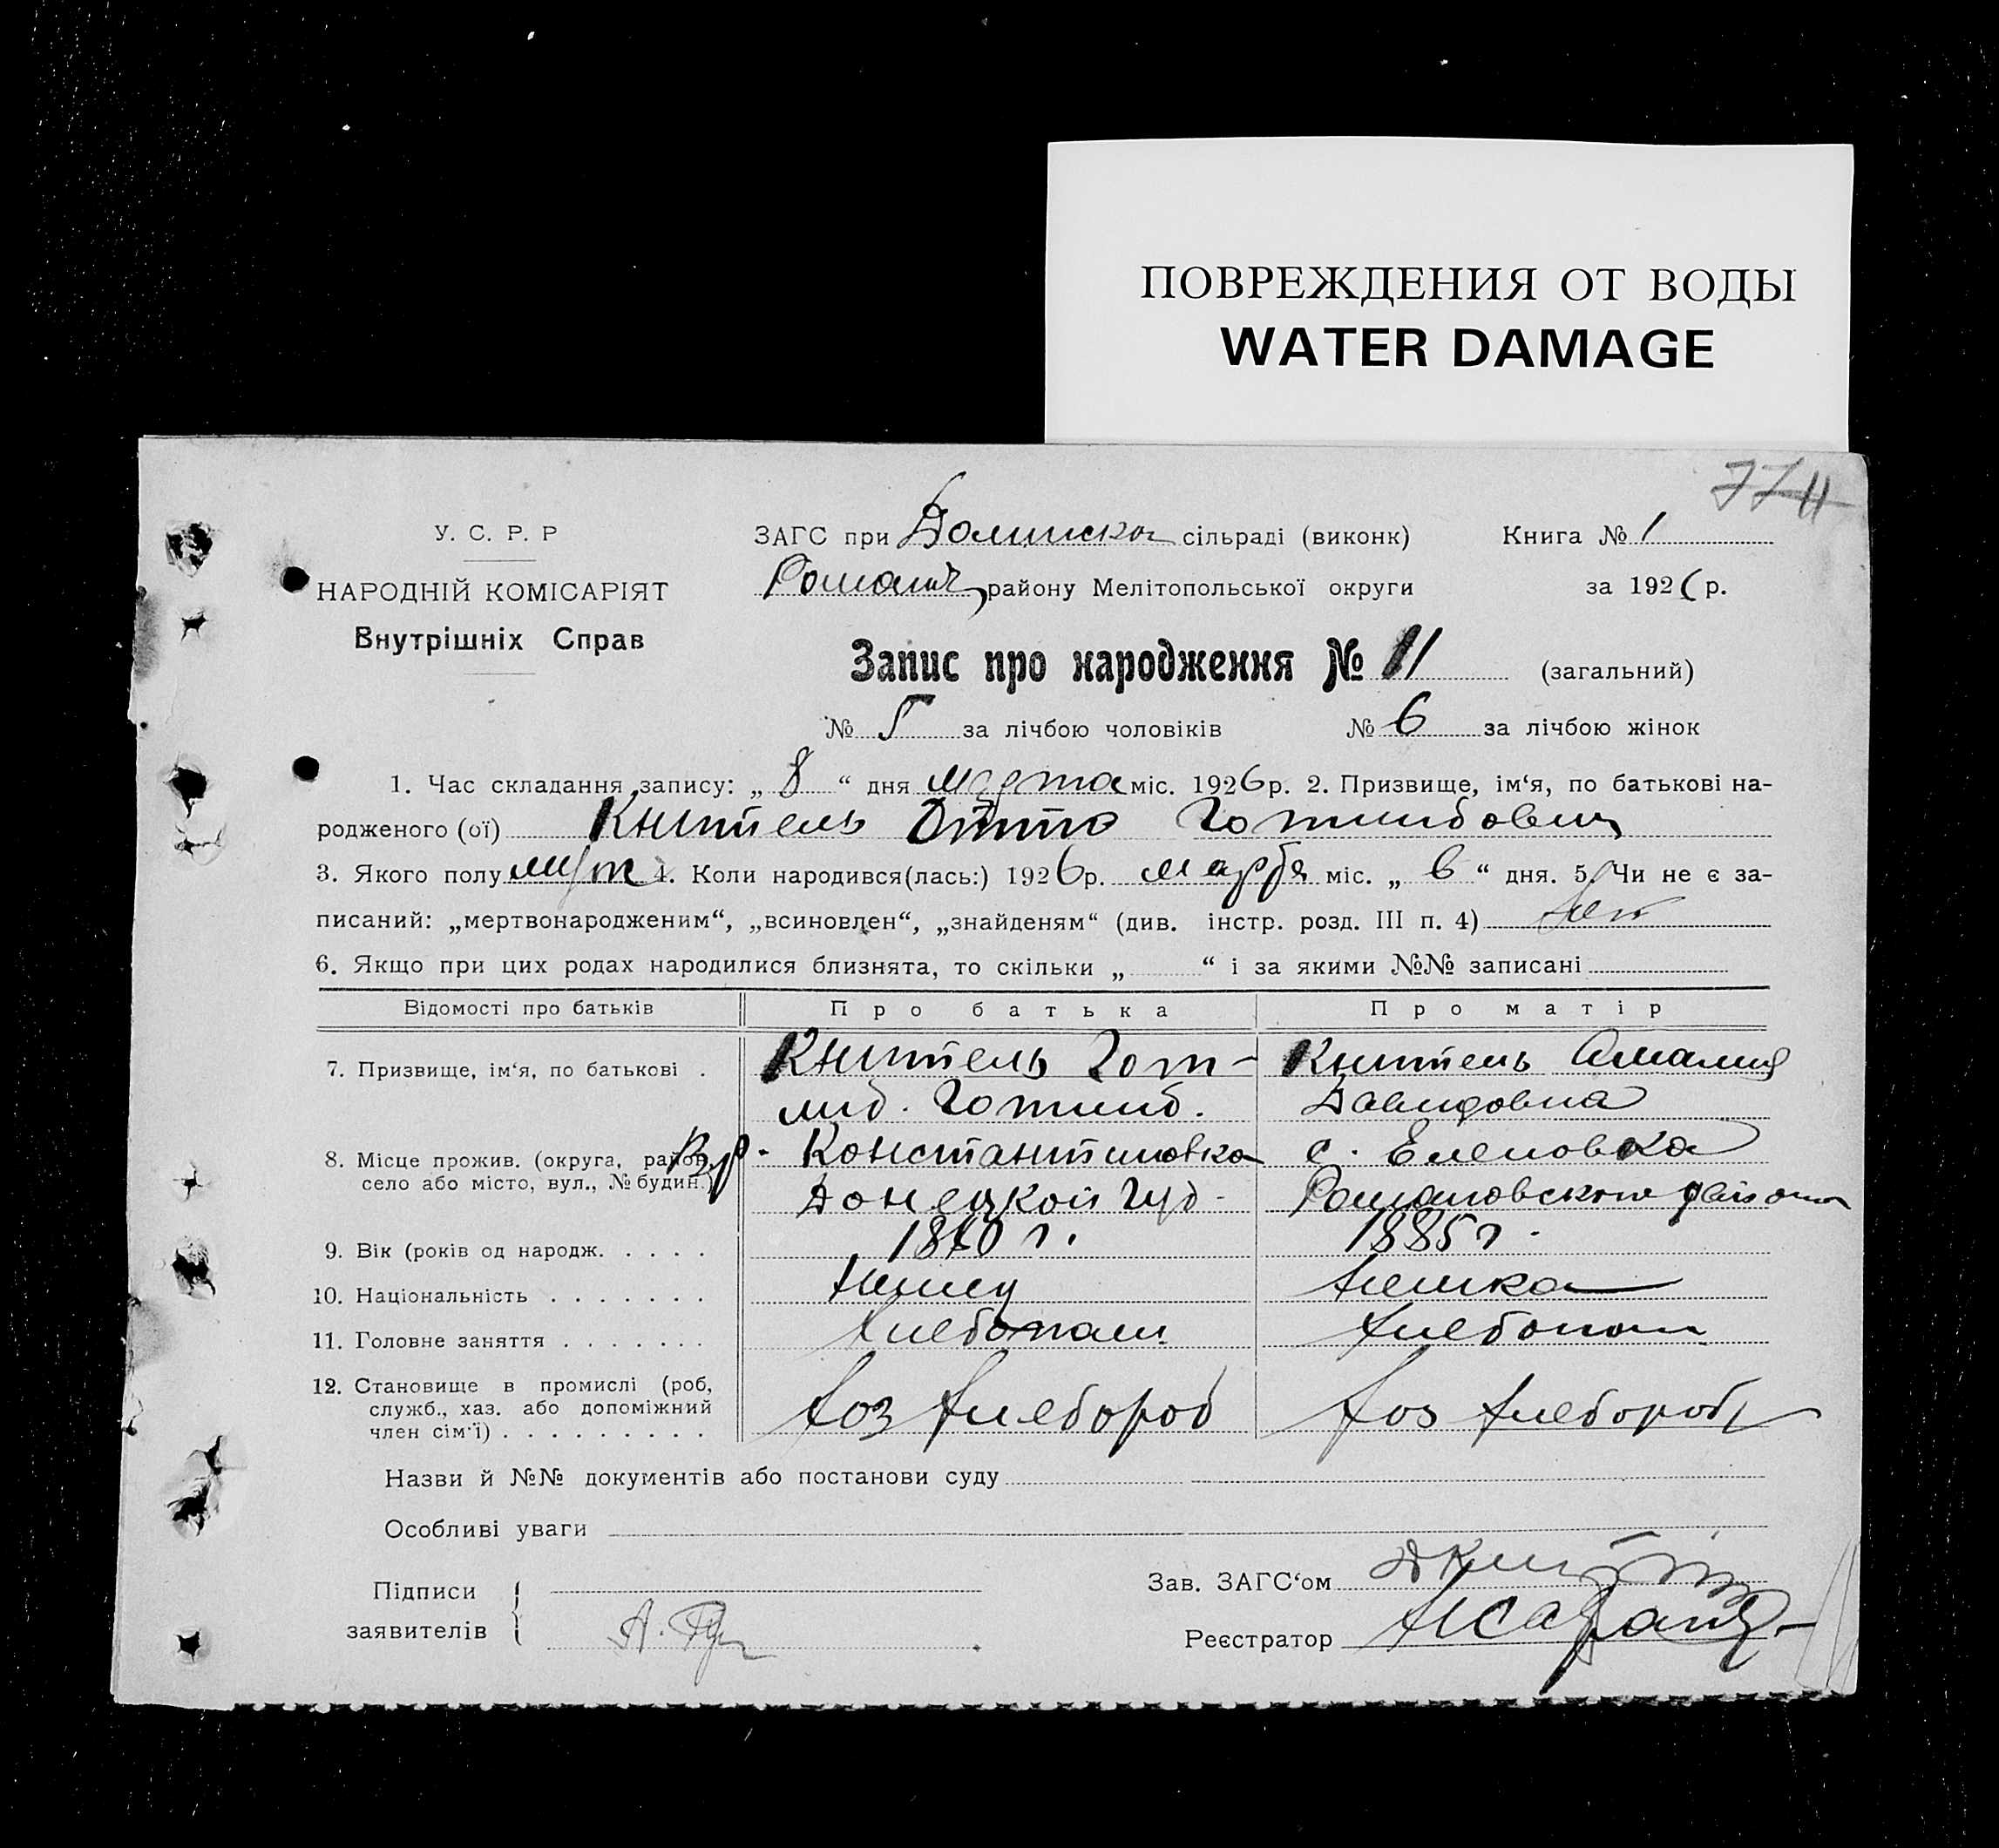 ПОВРЕЖДЕНИЯ ОТ ВОДЫ
WATER DAMAGE
У. С. Р. Р
НАРОДНІЙ КОМІСАРІЯТ
Внутрішніх Справ
ЗАГС при Долинской сільраді (виконк) Книга № 1
Романов району Мелітопольської округи за 1926 р.
Запис про народження № 11 (загальний)
№ 5 за лічбою чоловіків № 6 за лічбою жінок
1. Час складання запису: „ 8 “ дня марта міс. 1926 р. 2. Призвище, ім‘я, по батькові на-
родженого (ої) Книтель Отто Готлибович
3. Якого полу муж 4. Коли народився(лась:) 1926 р. марта міс. „ 6 “ дня. 5. Чи не є за-
писаний: „мертвонародженим“, „всиновлен“, „знайденям“ (див. інстр. розд. III п. 4) нет
6. Якщо при цих родах народилися близнята, то скільки „ “ і за якими №№ записані
Відомості про батьків Про батька Про матір
7. Призвище, ім‘я, по батькові . Книтель Гот- Книтель Амалия
либ. Готлиб. Давидовна
8. Місце прожив. (округа, район, Вр. Константиновка с. Еленовка
село або місто, вул., № будин.) Донецкой Губ. Романовского района
9. Вік (років од народж. . . . . 18 0 г. 1885 г.
10. Національність . . . . . . . Немец Немка
11. Головне заняття . . . . . . . Хлебопаш Хлебопаш
12. Становище в промислі (роб,
служб., хаз. або допоміжний Хоз Хлебороб Хоз Хлебороб
член сім‘ї) . . . . . . . . .
Назви й №№ документів або постанови суду
Особливі уваги
Підписи
заявителів
Зав. ЗАГС‘ом
Реєстратор